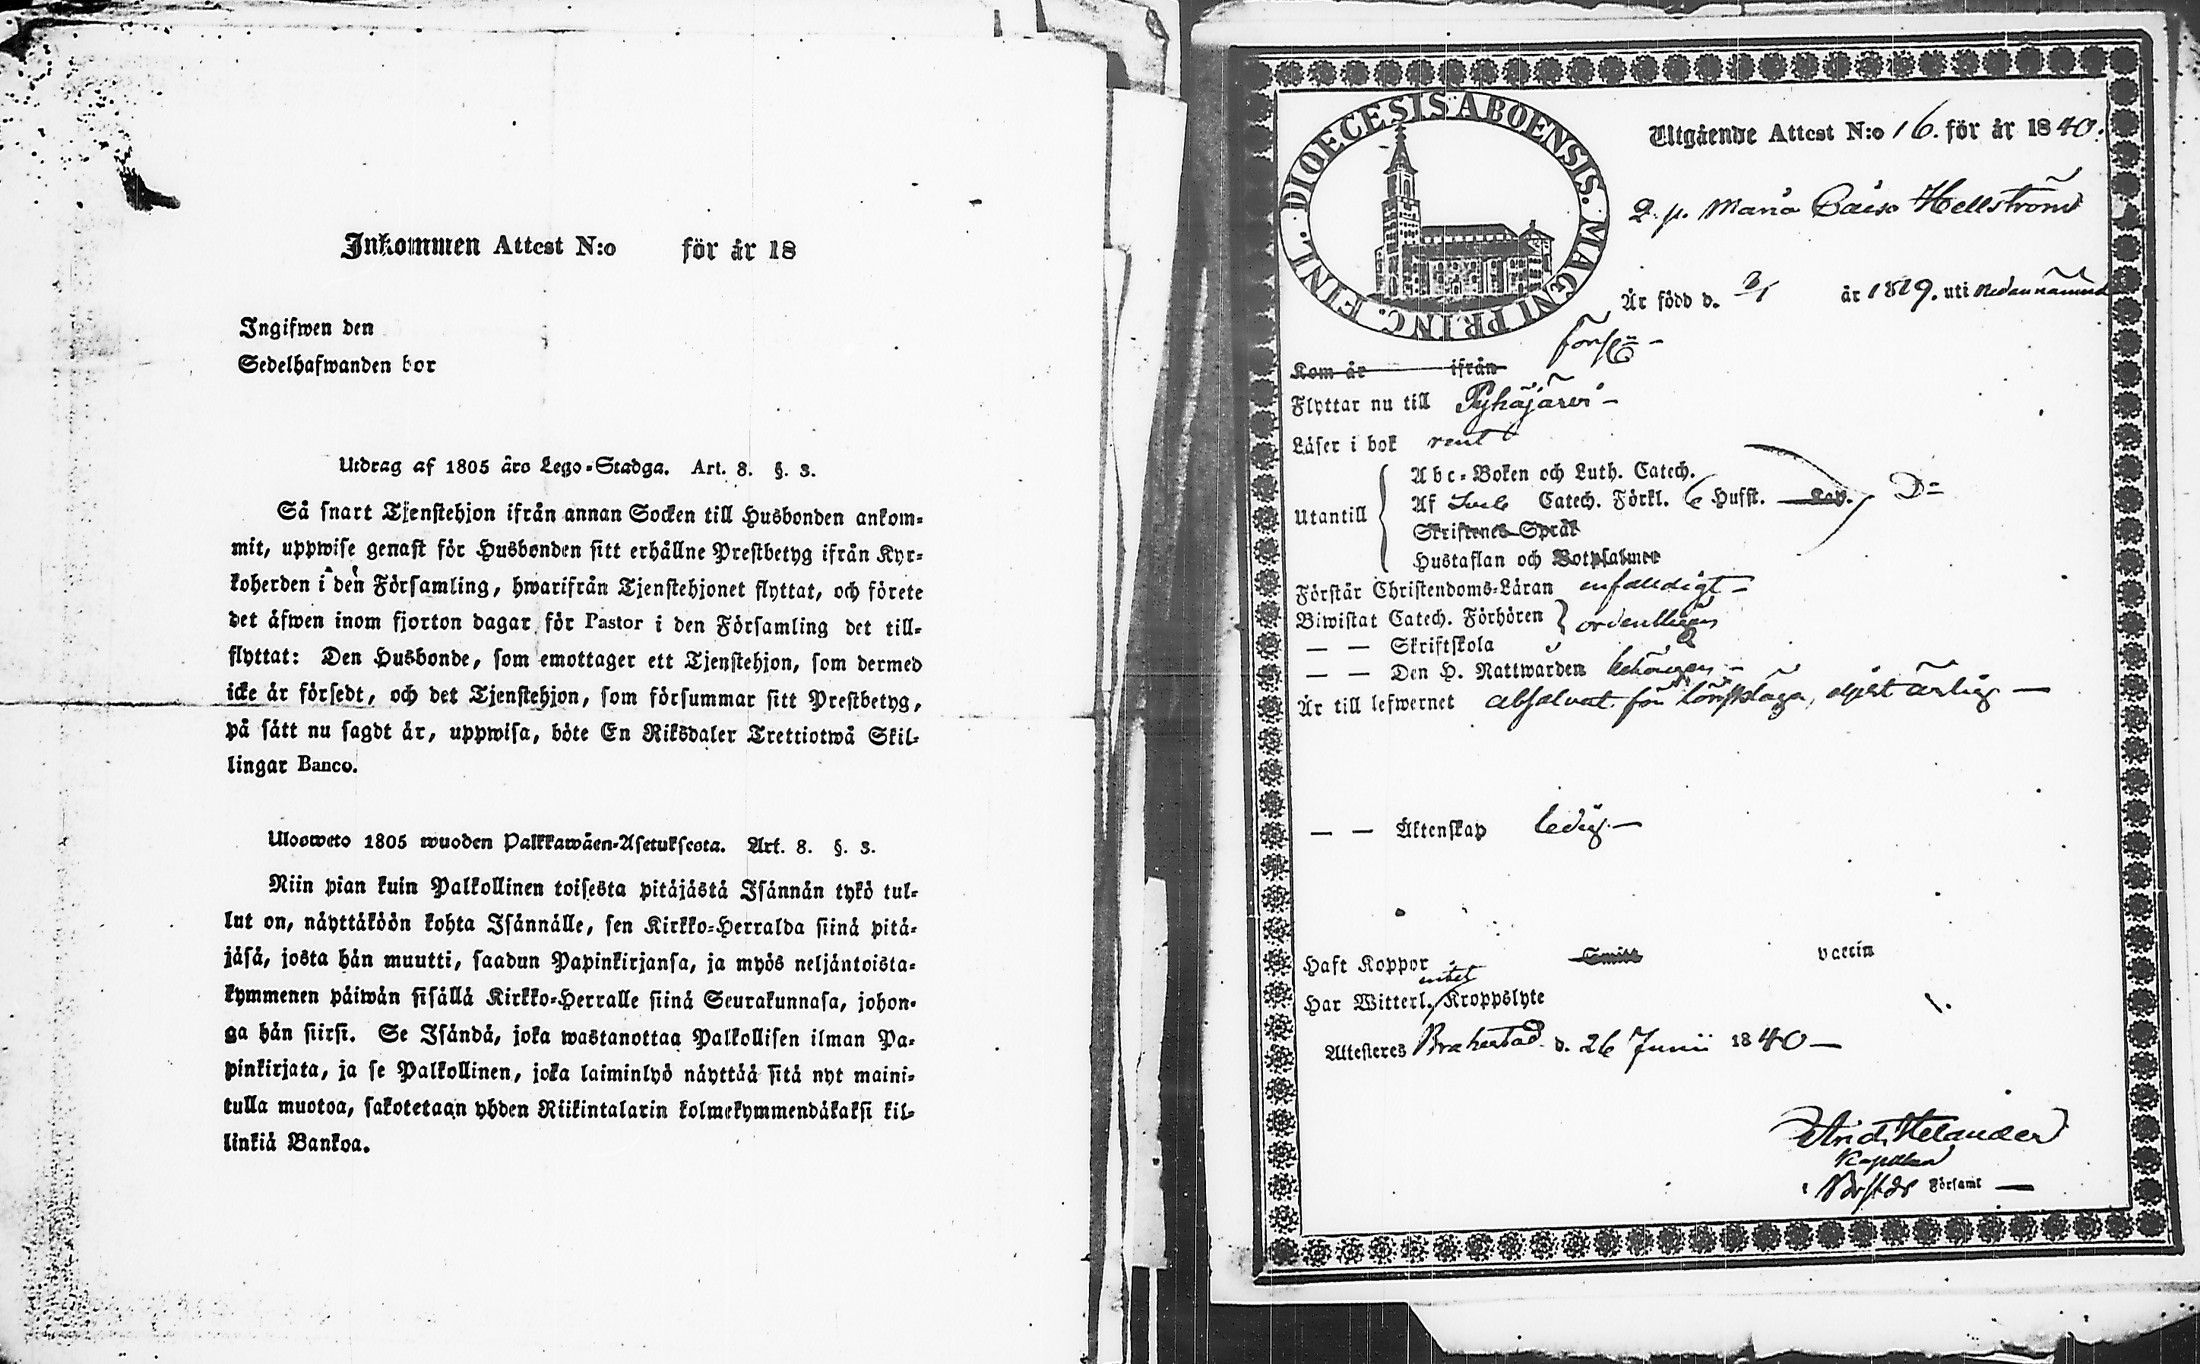 Inkommen Attest N:o för år 18
Ingifwen den
Sedelhafwanden bor
Utdrag af 1805 års Lego-Stadga. Art. 8. §. 3.
Så snart Tjenstehjon ifrån annan Socken till Husbonden ankom-
mit, uppwise genast för Husbonden sitt erhållne Prestbetyg ifrån Kyr-
koherden i den Församling, hwarifrån Tjenstehjonet flyttat, och förete
det äfwen inom fjorton dagar för Pastor i den Församling det till-
flyttat: Den Husbonde, som emottager ett Tjenstehjon, som dermed
icke är försedt, och det Tjenstehjon, som försummar sitt Prestbetyg,
på sätt nu sagdt är, uppwisa, böte En Riksdaler Trettiotwå Skil-
lingar Banco.
Ulosweto 1805 wuoden Palkkawäen-Asetuksesta. Art. 8. §. 3.
Niin pian kuin Palkollinen toisesta pitäjästä Isännän tykö tul-
lut on, näyttäköön kohta Isännälle, sen Kirkko-Herralda siinä pitä-
jäsä, josta hän muutti, saadun Papinkirjansa, ja myös neljäntoista-
kymmenen päiwän sisällä Kirkko-Herralle siinä Seurakunnasa, johon-
ga hän siirsi. Se Isändä, joka wastanottaa Palkollisen ilman Pa-
pinkirjata, ja se Palkollinen, joka laiminlyö näyttää sitä nyt maini-
tulla muotoa, sakotetaan yhden Riikintalarin kolmekymmendäkaksi kil-
linkiä Bankoa.
DIOECESIS ABOENSIS. MAGNI PRINC. FINL.
Utgående Attest N:o 16. för år 1840.
Q. p. Maria Caisa Hellström
Är född d. 3/1 år 1819. uti nedannämnde
förs
Kom år ifrån
Flyttar nu till Pyhäjärvi -
Läser i bok rent
Utantill
Abc-Boken och Luth. Catech.
Af Catech. Förkl. Husst. Kap. D=
Skriftenes Språk
Hustaflan och Botpsalmer
Förstår Christendoms-Läran enfaldigt -
Biwistat Catech. Förhören ordentligen
— — Skriftskola
— — Den H. Nattwarden behörigen -
Är till lefwernet absolverat för lönskaläge, eljest ärlig —
— — Äktenskap ledig. —
Haft Koppor Smitt vaccin
Har Witterl. intet Kroppslyte
Attesteres Brahestad d. 26 Junii 1840 —
Helander
Kapellan
i Församl —